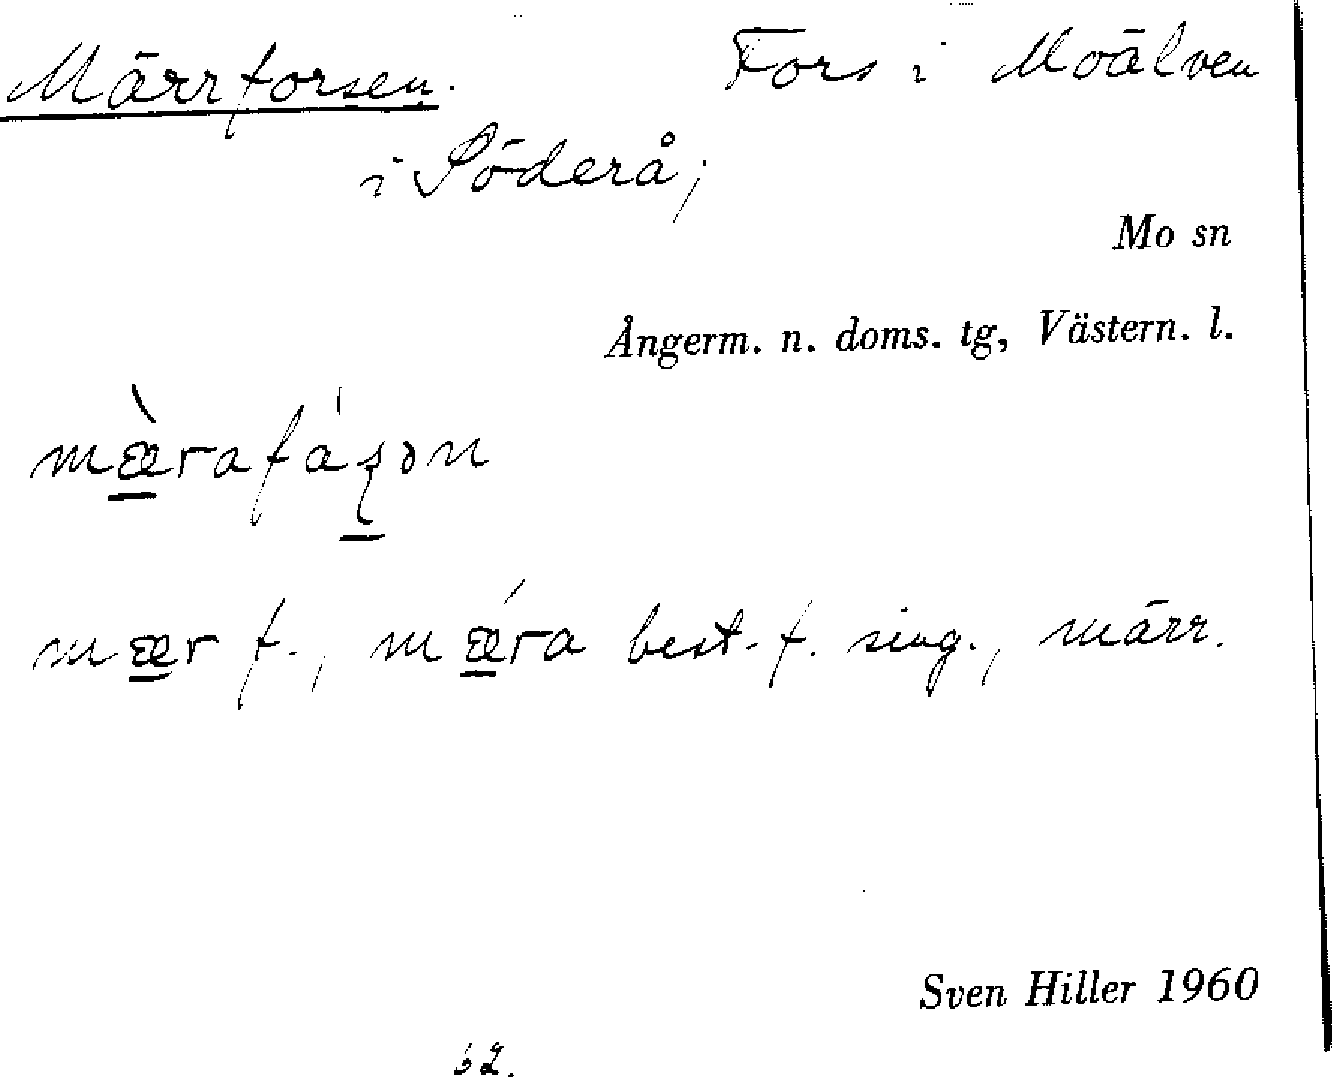 Märrforsen. Fors i Moälven
i Söderå;
Mo sn
Ångerm. n. doms. tg, Västern. l.
mæ̀rafáʂən
mær f., mǽra best. f. sing., märr.
Sven Hiller 1960
62.